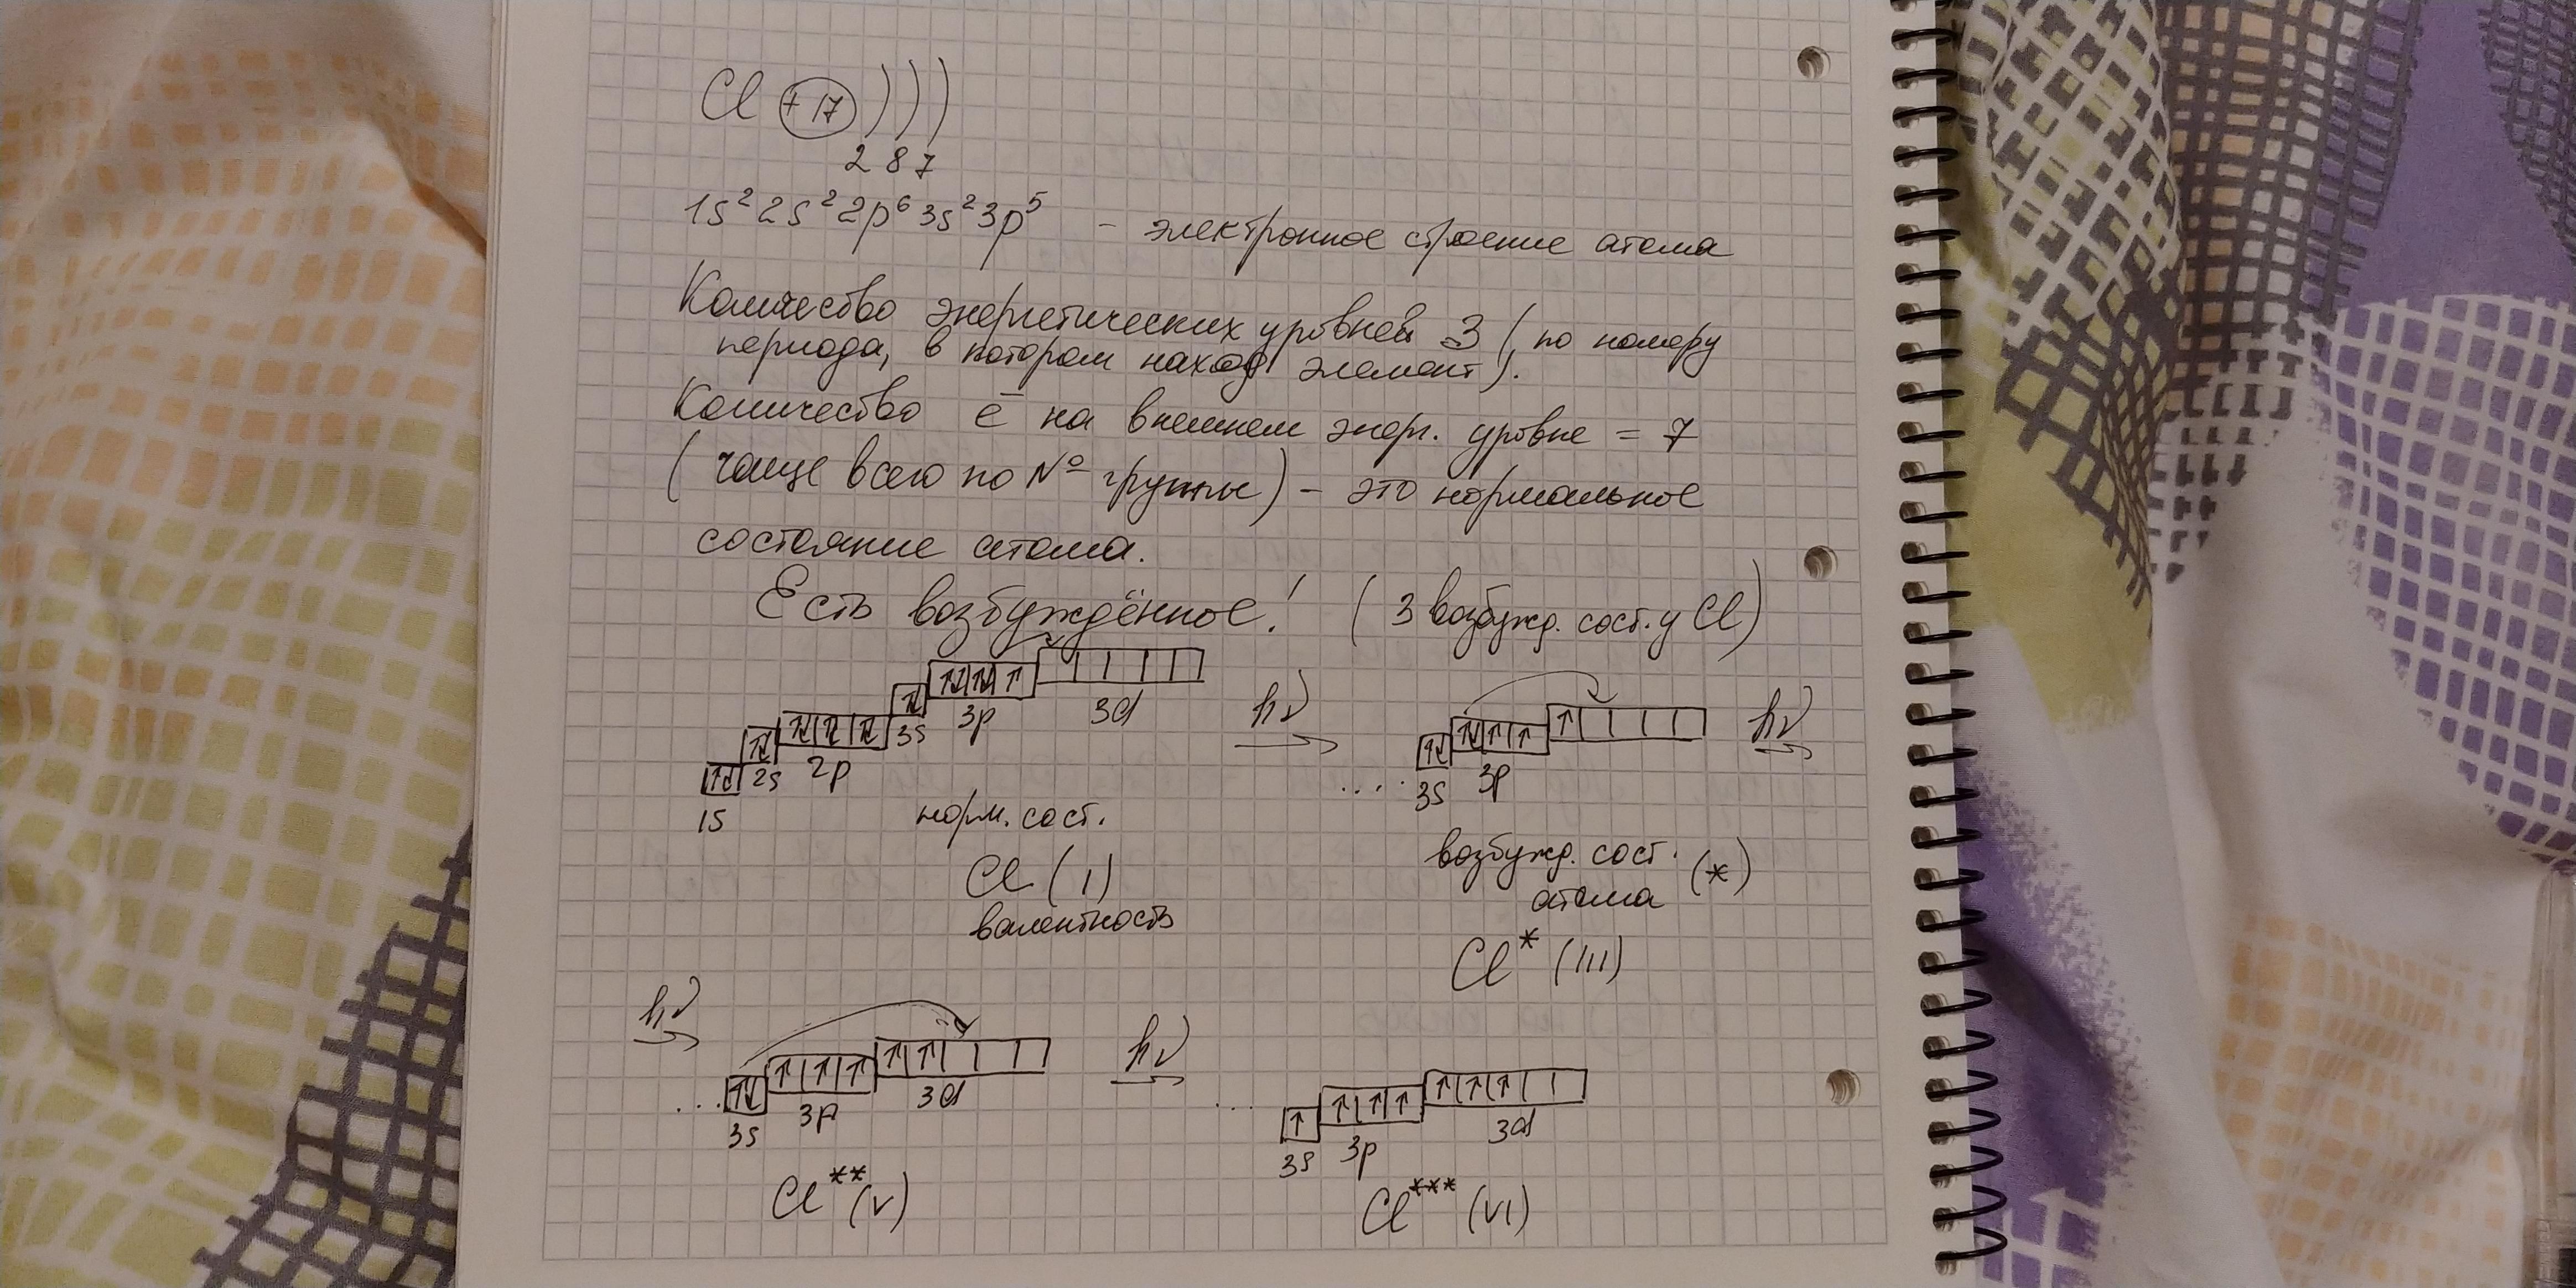 Cl +17 ) ) )
2 8 7
1s² 2s² 2p⁶ 3s² 3p⁵ - электронное строение атома
Количество энергетических уровней 3 (по номеру
периода, в котором наход элемент).
Количество ē на внешнем энерг. уровне = 7
(чаще всего по № группы) - это нормальное
состояние атома.
Есть возбуждённое! (3 возбужд. сост. у Cl)
↑↓ ↑↓ ↑↓ ↑↓ ↑↓ ↑↓ ↑↓ ↑↓ ↑
1s 2s 2p 3s 3p 3d
hν →
... ↑↓ ↑↓ ↑ ↑ ↑
3s 3p
hν →
норм. сост.
Cl (I)
валентность
возбужд. сост.
атома (*)
Cl* (III)
hν →
... ↑↓ ↑ ↑ ↑ ↑ ↑
3s 3p 3d
hν →
... ↑ ↑ ↑ ↑ ↑ ↑ ↑
3s 3p 3d
Cl** (V)
Cl*** (VI)